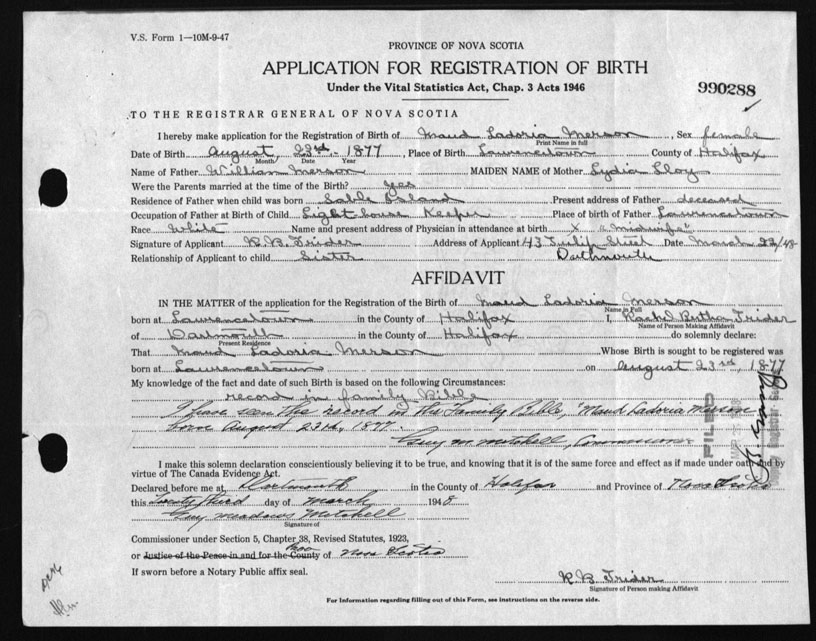 V.S. Form 1—10M-9-47
PROVINCE OF NOVA SCOTIA
APPLICATION FOR REGISTRATION OF BIRTH
Under the Vital Statistics Act, Chap. 3 Acts 1946
990288
TO THE REGISTRAR GENERAL OF NOVA SCOTIA
I hereby make application for the Registration of Birth of Maud Ladoria Merson, Sex female
Print Name in full
Date of Birth August 23rd, 1877, Place of Birth Lawrencetown County of Halifax
Month Date Year
Name of Father William Merson MAIDEN NAME of Mother Lydia
Were the Parents married at the time of the Birth? yes
Residence of Father when child was born Sable Island Present address of Father deceased
Occupation of Father at Birth of Child Light house Keeper Place of birth of Father Lawrencetown
Race White Name and present address of Physician in attendance at birth x "Midwife"
Signature of Applicant R. B. Trider Address of Applicant 43 Tulip Street Date March 22/48
Relationship of Applicant to child Sister Dartmouth
AFFIDAVIT
IN THE MATTER of the application for the Registration of the Birth of Maud Ladoria Merson
Name in Full
born at Lawrencetown in the County of Halifax I, Rachel Butler Trider
Name of Person Making Affidavit
of Dartmouth in the County of Halifax do solemnly declare:
Present Residence
That Maud Ladoria Merson Whose Birth is sought to be registered was
born at Lawrencetown on August 23rd, 1877
My knowledge of the fact and date of such Birth is based on the following Circumstances:
record in family Bible
I have seen the record in the Family Bible, "Maud Ladoria Merson
born August 23rd, 1877.
Guy M Mitchell, Commissioner
FILED
I make this solemn declaration conscientiously believing it to be true, and knowing that it is of the same force and effect as if made under oath and by
virtue of The Canada Evidence Act.
Declared before me at Dartmouth in the County of Halifax and Province of Nova Scotia
this Twenty third day of March 1948
Guy Meadows Mitchell
Signature of
Commissioner under Section 5, Chapter 38, Revised Statutes, 1923,
or Justice of the Peace in and for the County of Nova Scotia
If sworn before a Notary Public affix seal.
R B Trider
Signature of Person making Affidavit
For Information regarding filling out of this Form, see instructions on the reverse side.